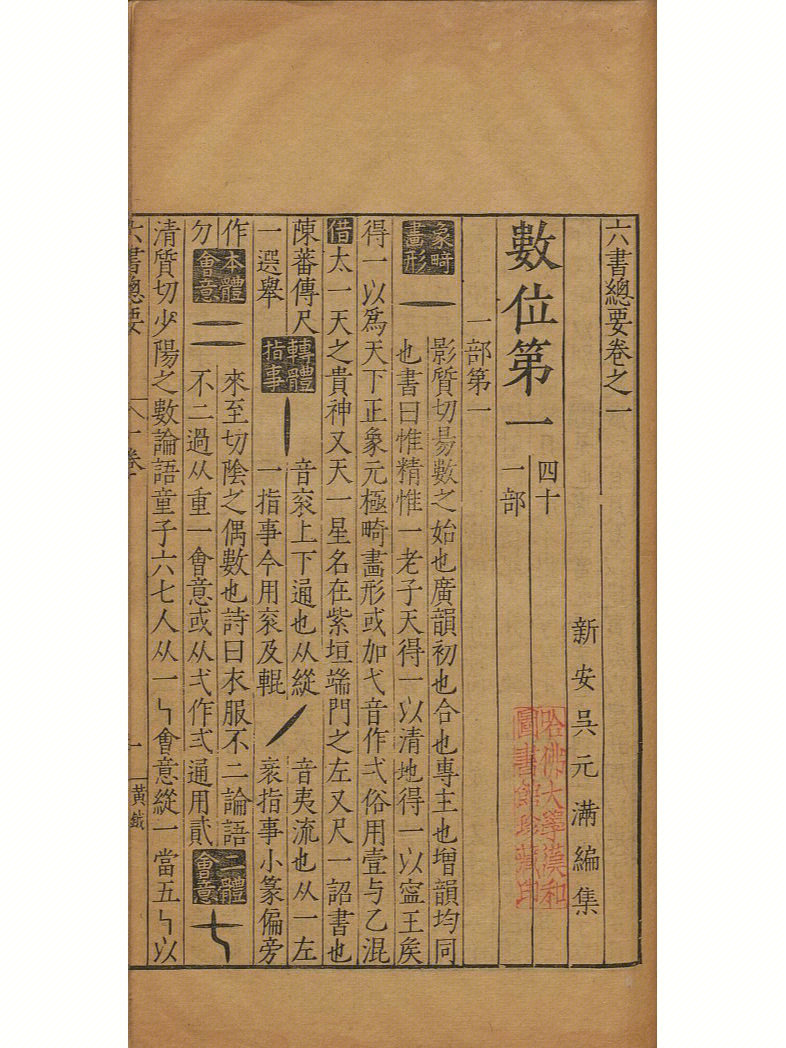 六書總要卷之一
新安吳元滿編集
數位第一
四十
一部
哈佛大學漢和
圖書館珍藏印
一部第一
象畸
畫形
一
影質切昜數之始也廣韻初也合也專主也增韻均同
也書曰惟精惟一老子天得一以清地得一以寍王矦
得一以爲天下正象元極畸畫形或加弋音作弌俗用壹与乙混
借太一天之貴神又天一星名在紫垣端門之左又尺一詔書也
陳蕃傳尺
一選舉
轉體
指事
丨
音衮上下通也从縱
一指事今用衮及輥
丿
音夷流也从一左
衺指事小篆偏旁
作
本體
會意
二
來至切陰之偶數也詩曰衣服不二論語
勿
不二過从重一會意或从弌作弍通用貳
二體
會意
七
清質切少陽之數論語童子六七人从一㇉會意縱一當五㇉以
六書總要
卷一
一